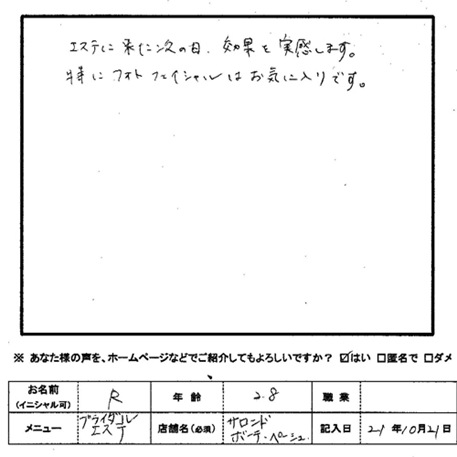 エステに来た次の日、効果を実感します。
特にフォトフェイシャルはお気に入りです。
※ あなた様の声を、ホームページなどでご紹介してもよろしいですか？ ☑はい □匿名で □ダメ
お名前 (イニシャル可) R 年齢 28 職業
メニュー ブライダルエステ 店舗名(必須) サロンド ボーテ・ペーシュ 記入日 21年10月21日